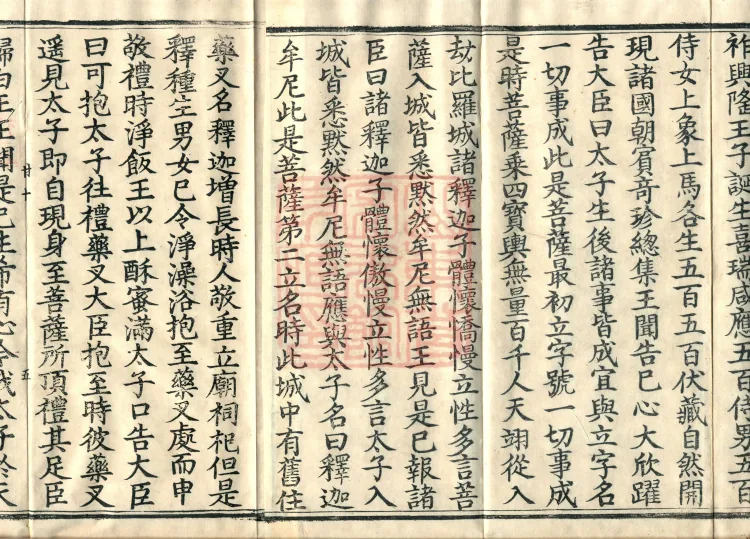 祚興隆王子誕生喜瑞咸應五百侍男五百
侍女上象上馬各生五百五百伏藏自然開
現諸國朝賓奇珍總集王聞告已心大欣躍
告大臣曰太子生後諸事皆成宜與立字名
一切事成此是菩薩最初立字號一切事成
是時菩薩乘四寶輿無量百千人天翊從入
劫比羅城諸釋迦子體懷憍慢立性多言菩
薩入城皆悉默然牟尼無語王見是已報諸
臣曰諸釋迦子體懷傲慢立性多言太子入
城皆悉默然牟尼無語應與太子名曰釋迦
牟尼此是菩薩第二立名時此城中有舊住
藥叉名釋迦增長時人敬重立廟祠祀但是
釋種生男女已令淨澡浴抱至藥叉處而申
敬禮時淨飯王以上酥蜜滿太子口告大臣
曰可抱太子往禮藥叉大臣抱至時彼藥叉
遥見太子即自現身至菩薩所頂禮其足臣
廿十 五
歸白王王聞是已生希有心今我太子於天